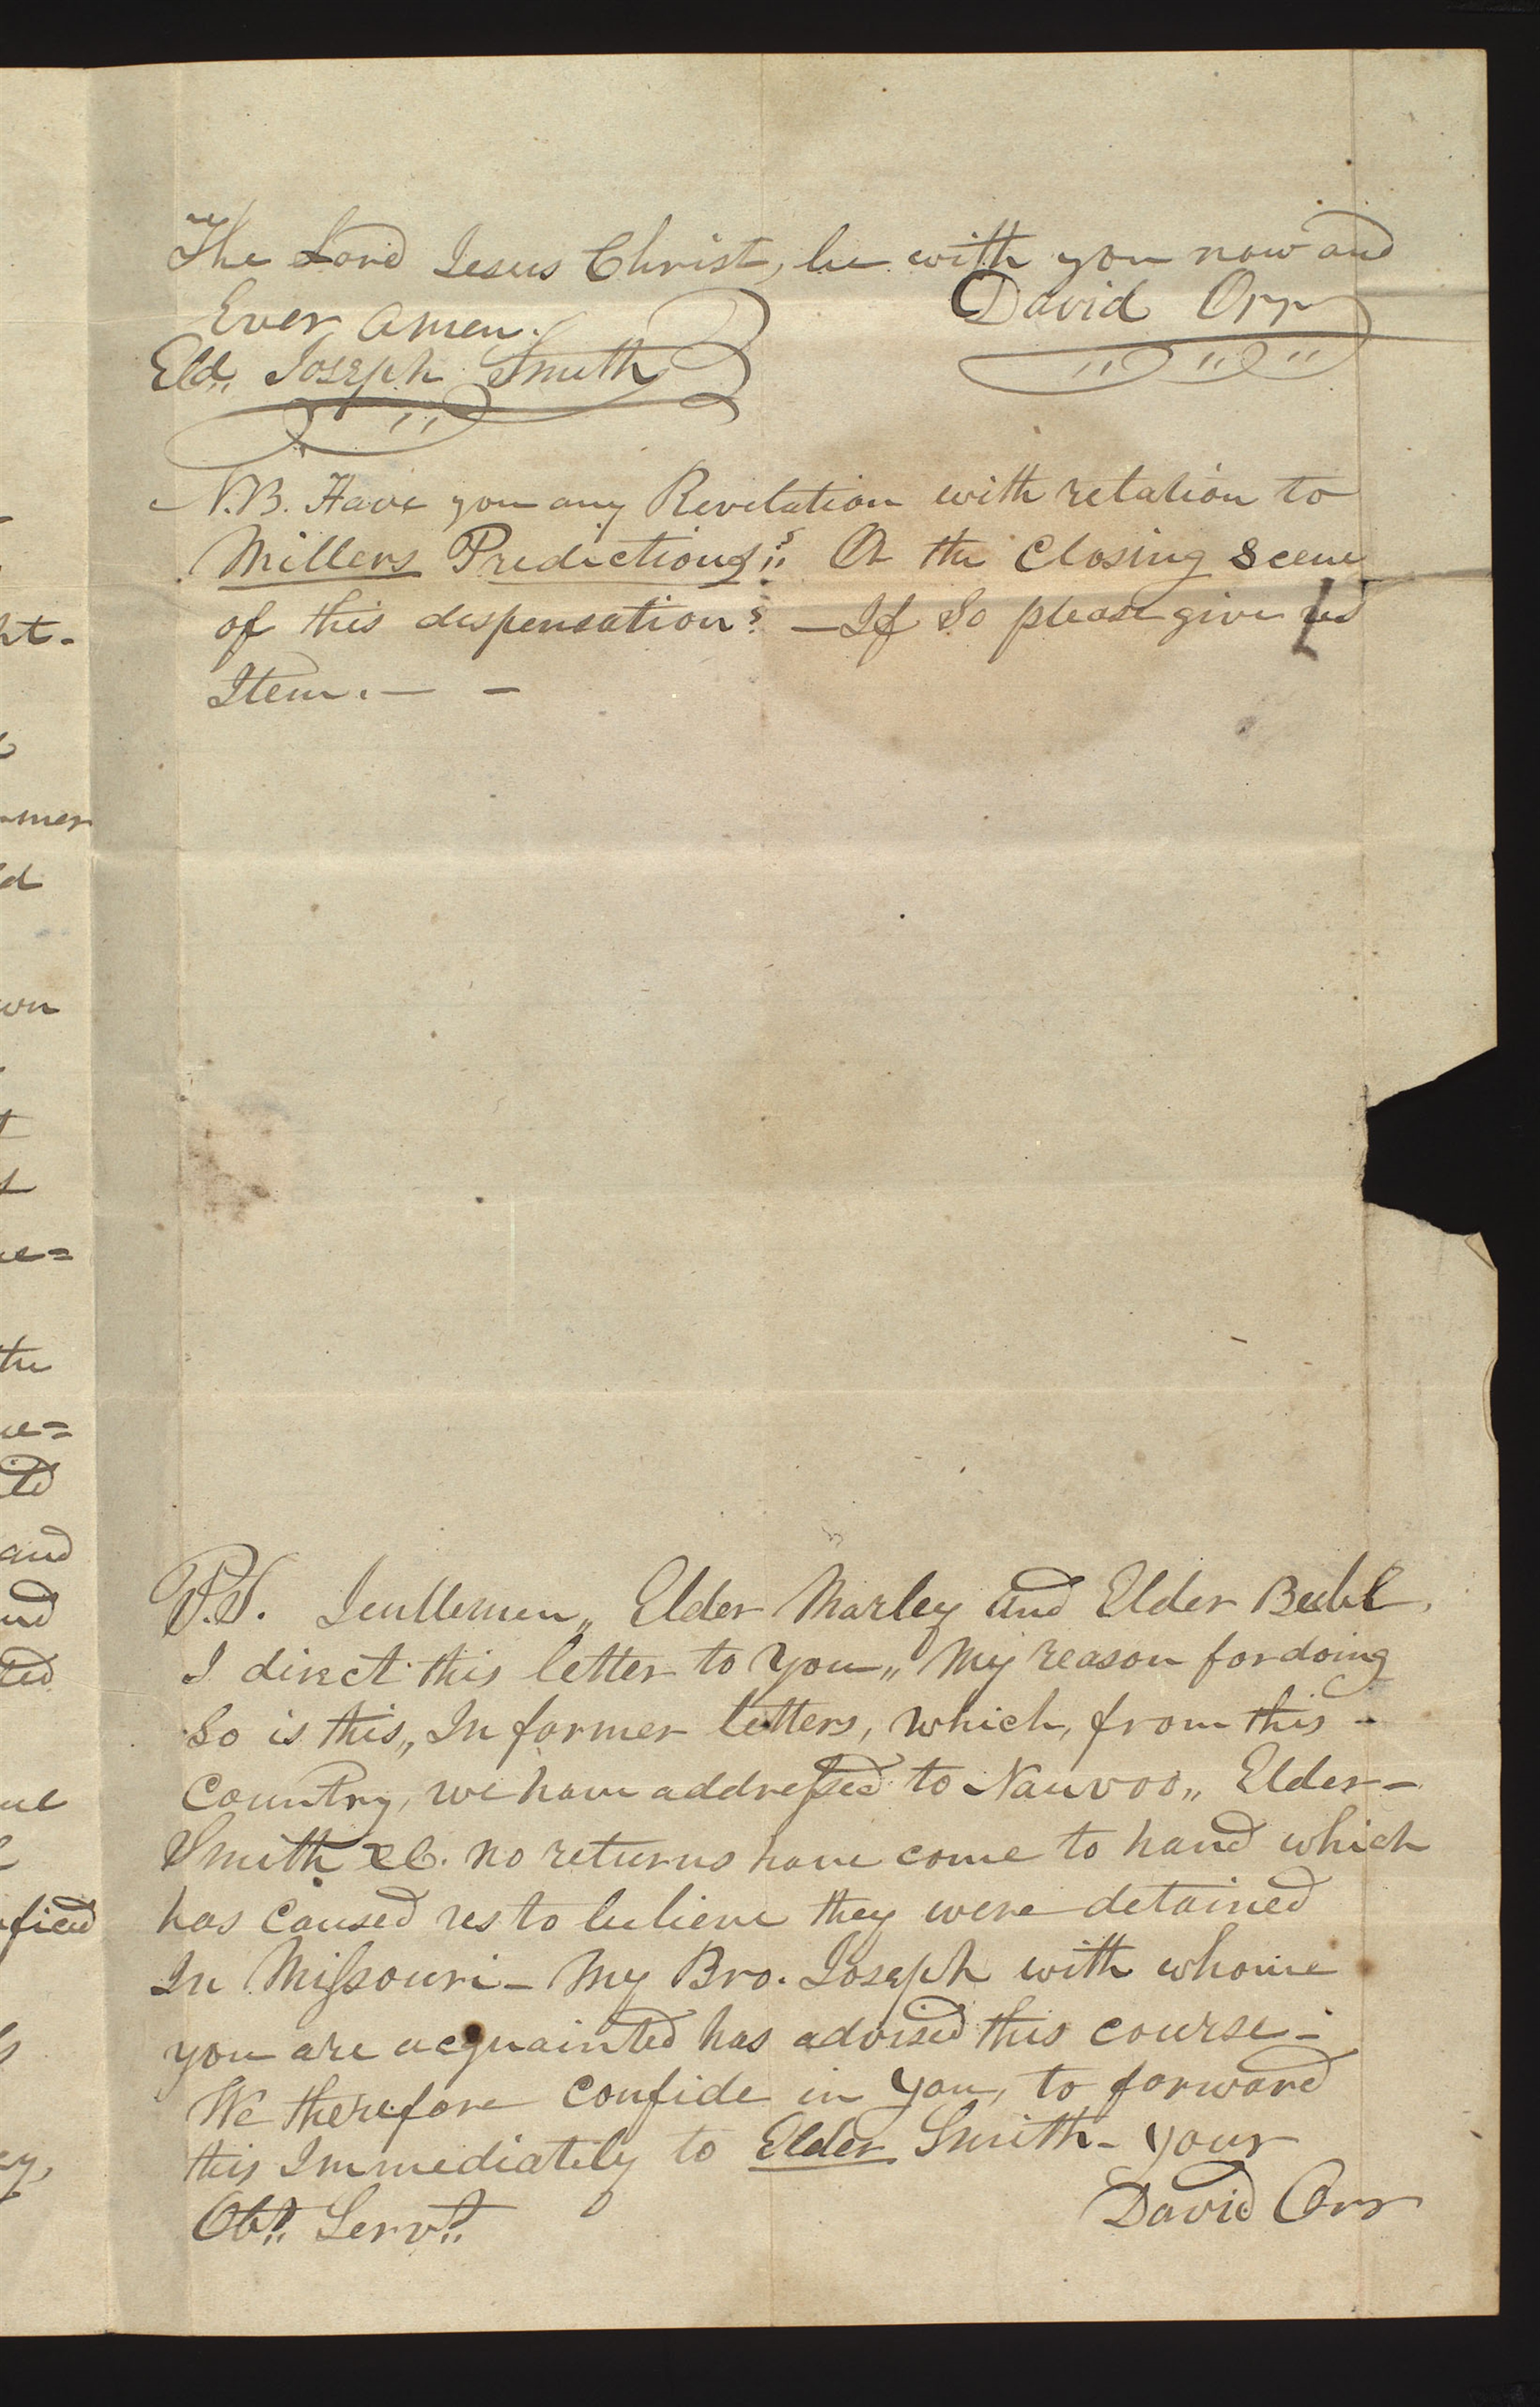 The Lord Jesus Christ, be with you now and
Ever Amen.
David Orr
Eld,, Joseph Smith
N.B. Have you any Revelation with relation to
Millers Predictions,,? Or the Closing Scene
of this dispensation? — If So please give us
Item. — –
P.S. Gentlemen,, Elder Marley and Elder
I direct this letter to you,, My reason for doing
So is this,, In former letters, which, from this –
Country, we have addressed to Nauvoo,, Elder –
Smith &c. no returns have come to hand which
has caused us to believe they were detained
In Missouri – My Bro. Joseph with whome
you are acquainted has advised this course –
We therefore confide in you, to forward
this Immediately to Elder Smith – your
Obt,, Servt,,
David Orr
ht-
mer
d
wn
t
e=
the
e=
ed
and
nd
ted
fied